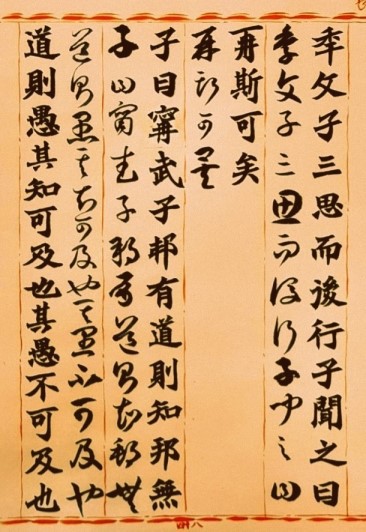 季文子三思而後行子聞之曰
季文子三思而後行子聞之曰
再斯可矣
再斯可矣
子曰甯武子邦有道則知邦無
子曰甯武子邦有道則知邦無
道則愚其知可及也其愚不可及也
道則愚其知可及也其愚不可及也